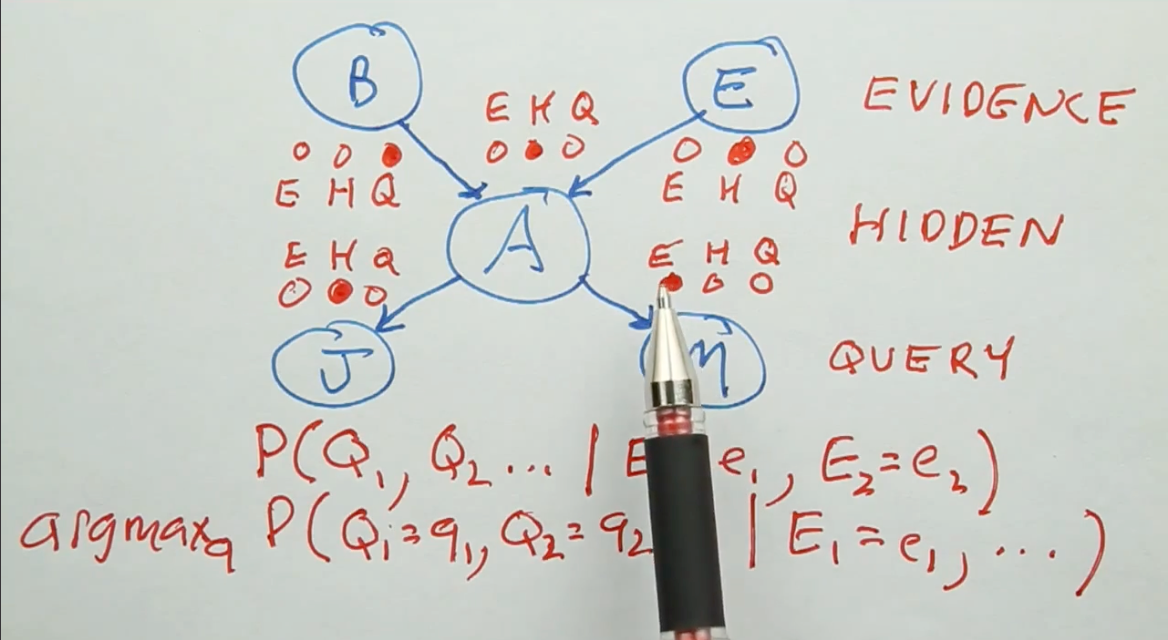 B
E
EVIDENCE
E H Q
E H Q
E H Q
A
HIDDEN
E H Q
E H Q
J
QUERY
P(Q₁, Q₂ ... | E e₁, E₂=e₂)
argmax_q P(Q₁=q₁, Q₂=q₂ | E₁=e₁, ...)